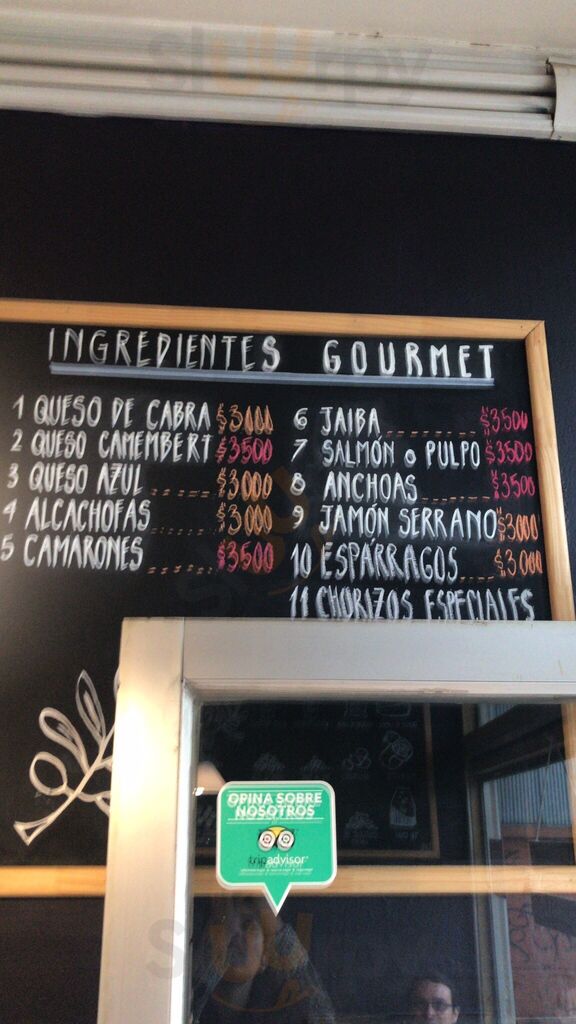 INGREDIENTES GOURMET
1 QUESO DE CABRA $3000
2 QUESO CAMEMBERT $3500
3 QUESO AZUL $3000
4 ALCACHOFAS $3000
5 CAMARONES $3500
6 JAIBA $3500
7 SALMÓN o PULPO $3500
8 ANCHOAS $3500
9 JAMÓN SERRANO $3000
10 ESPÁRRAGOS $3000
11 CHORIZOS ESPECIALES
OPINA SOBRE
NOSOTROS
tripadvisor
sluurpy
sluurpy